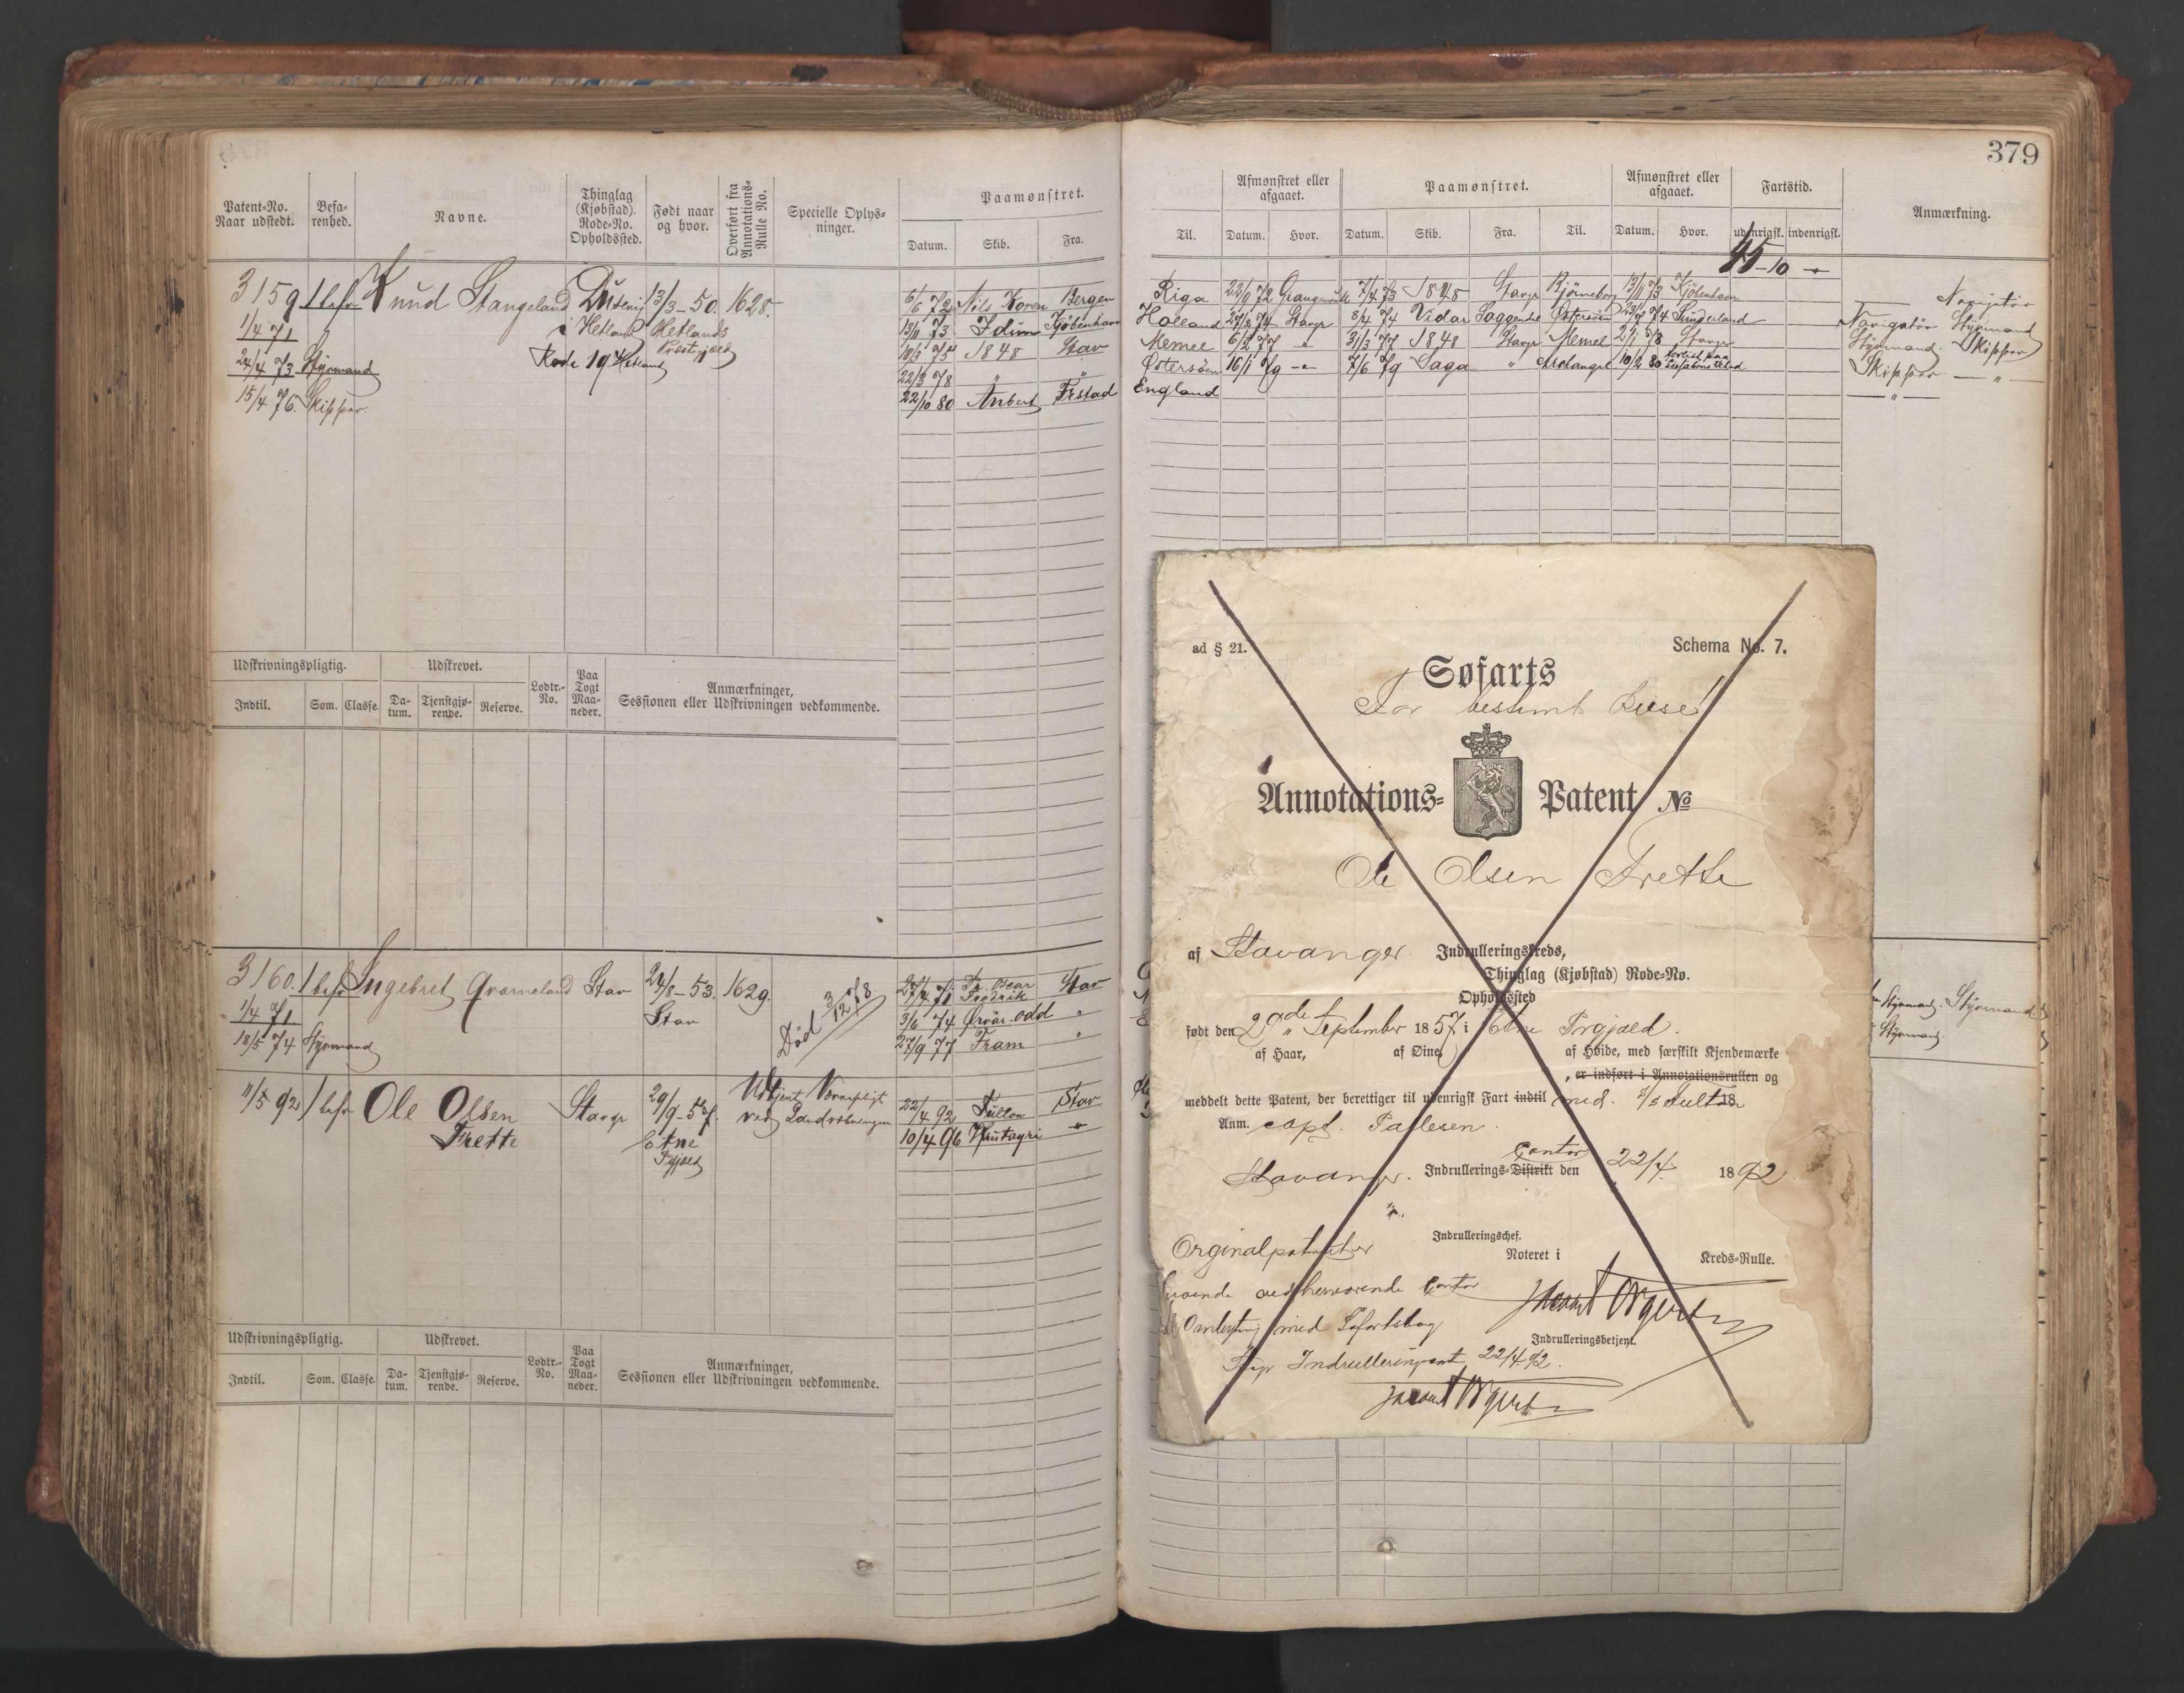 379
Patent-No. Naar udstedt.
Befa-renhed.
Navne.
Thinglag (Kjøbstad). Rode-No. Opholdssted.
Født naar og hvor.
Overført fra Annotations-Rulle No.
Specielle Oplys-ninger.
Paamønstret.
Datum. Skib. Fra.
Til.
Afmønstret eller afgaaet.
Datum. Hvor.
Paamønstret.
Datum. Skib. Fra. Til.
Afmønstret eller afgaaet.
Datum. Hvor.
Fartstid.
udenrigsk. indenrigsk.
Anmærkning.
3159 1 bef Knud Stangeland
i Hetland
Rode 19 Hetland
13/3-50. Hetlands Præstegjæld
1628.
1/4 71
24/4 73 Styrmand
15/4 76. Skipper.
6/6 72 Nils Koren Bergen
13/11 73. Idun Kjøbenhavn
18/3 75 1848 Stav
22/3 78 " "
22/10 80 Anbert Frstad
45-10
Riga 22/9 72 7/4 73 1848 Stavgr Bjørneborg 13/11 73 Kjøbenhavn
Holland Stavgr 8/4 74 Vidar Soggendal Østersøen Sunderland
Memel 6/3 77 " 31/3 77 1848 Stavgr Memel 2/1 78 Stavgr
Østersøen 16/1 79 7/6 79 Saga " Archangel 10/2 80
England
Navigatør
Navigatør Styrmand
Styrmand. Skipper
Skipper. — " —
— " —
Udskrivningspligtig. Udskrevet. Lodtr.-No. Paa Togt Maa-neder. Anmærkninger, Sessionen eller Udskrivningen vedkommende.
Indtil. Som. Classe. Da-tum. Tjenstgjø-rende. Reserve.
3160. 1 bef Ingebret Qvarneland Stav 24/8-53. Stav 1629.
1/4 71
18/5 74 Styrmand
Død 3/12 78
27/4 71 Fredrik Stav
3/6 74 Ørvar-Odd "
27/9 77 Fram "
Styrmand. Styrmand
Styrmand.
11/5 92 1 bef Ole Olsen Frette Stavgr 29/9-57. Etne Pgjæld
Udtjent Værnepligt ved Landværningen
22/4 92 Stav
10/4 96 "
Udskrivningspligtig. Udskrevet. Lodtr.-No. Paa Togt Maa-neder. Anmærkninger, Sessionen eller Udskrivningen vedkommende.
Indtil. Som. Classe. Da-tum. Tjenstgjø-rende. Reserve.
ad § 21. Schema No. 7.
Søfarts
For bestemt Reise!
Annotations- Patent No
Ole Olsen Frette
af Stavanger Indrulleringskreds,
Thinglag (Kjøbstad) Rode-No.
Opholdssted
født den 29de September 1857 i Etne Prgjæld.
af Haar, af Øine, af Høide, med særskilt Kjendemærke
, er indført i Annotationsrullen og
meddelt dette Patent, der berettiger til udenrigsk Fart indtil med. 18
Anm. Capt. Pallesen.
Contor
Stavanger. Indrullerings-Distrikt den 22/4. 1892
Indrulleringschef.
Orginalpatentet
Noteret i Kreds-Rulle.
beroende ved herværende Contor
Ombytning med Søfartsbog
Indrulleringsbetjent.
Stvgr Indrulleringscont 22/4 92.